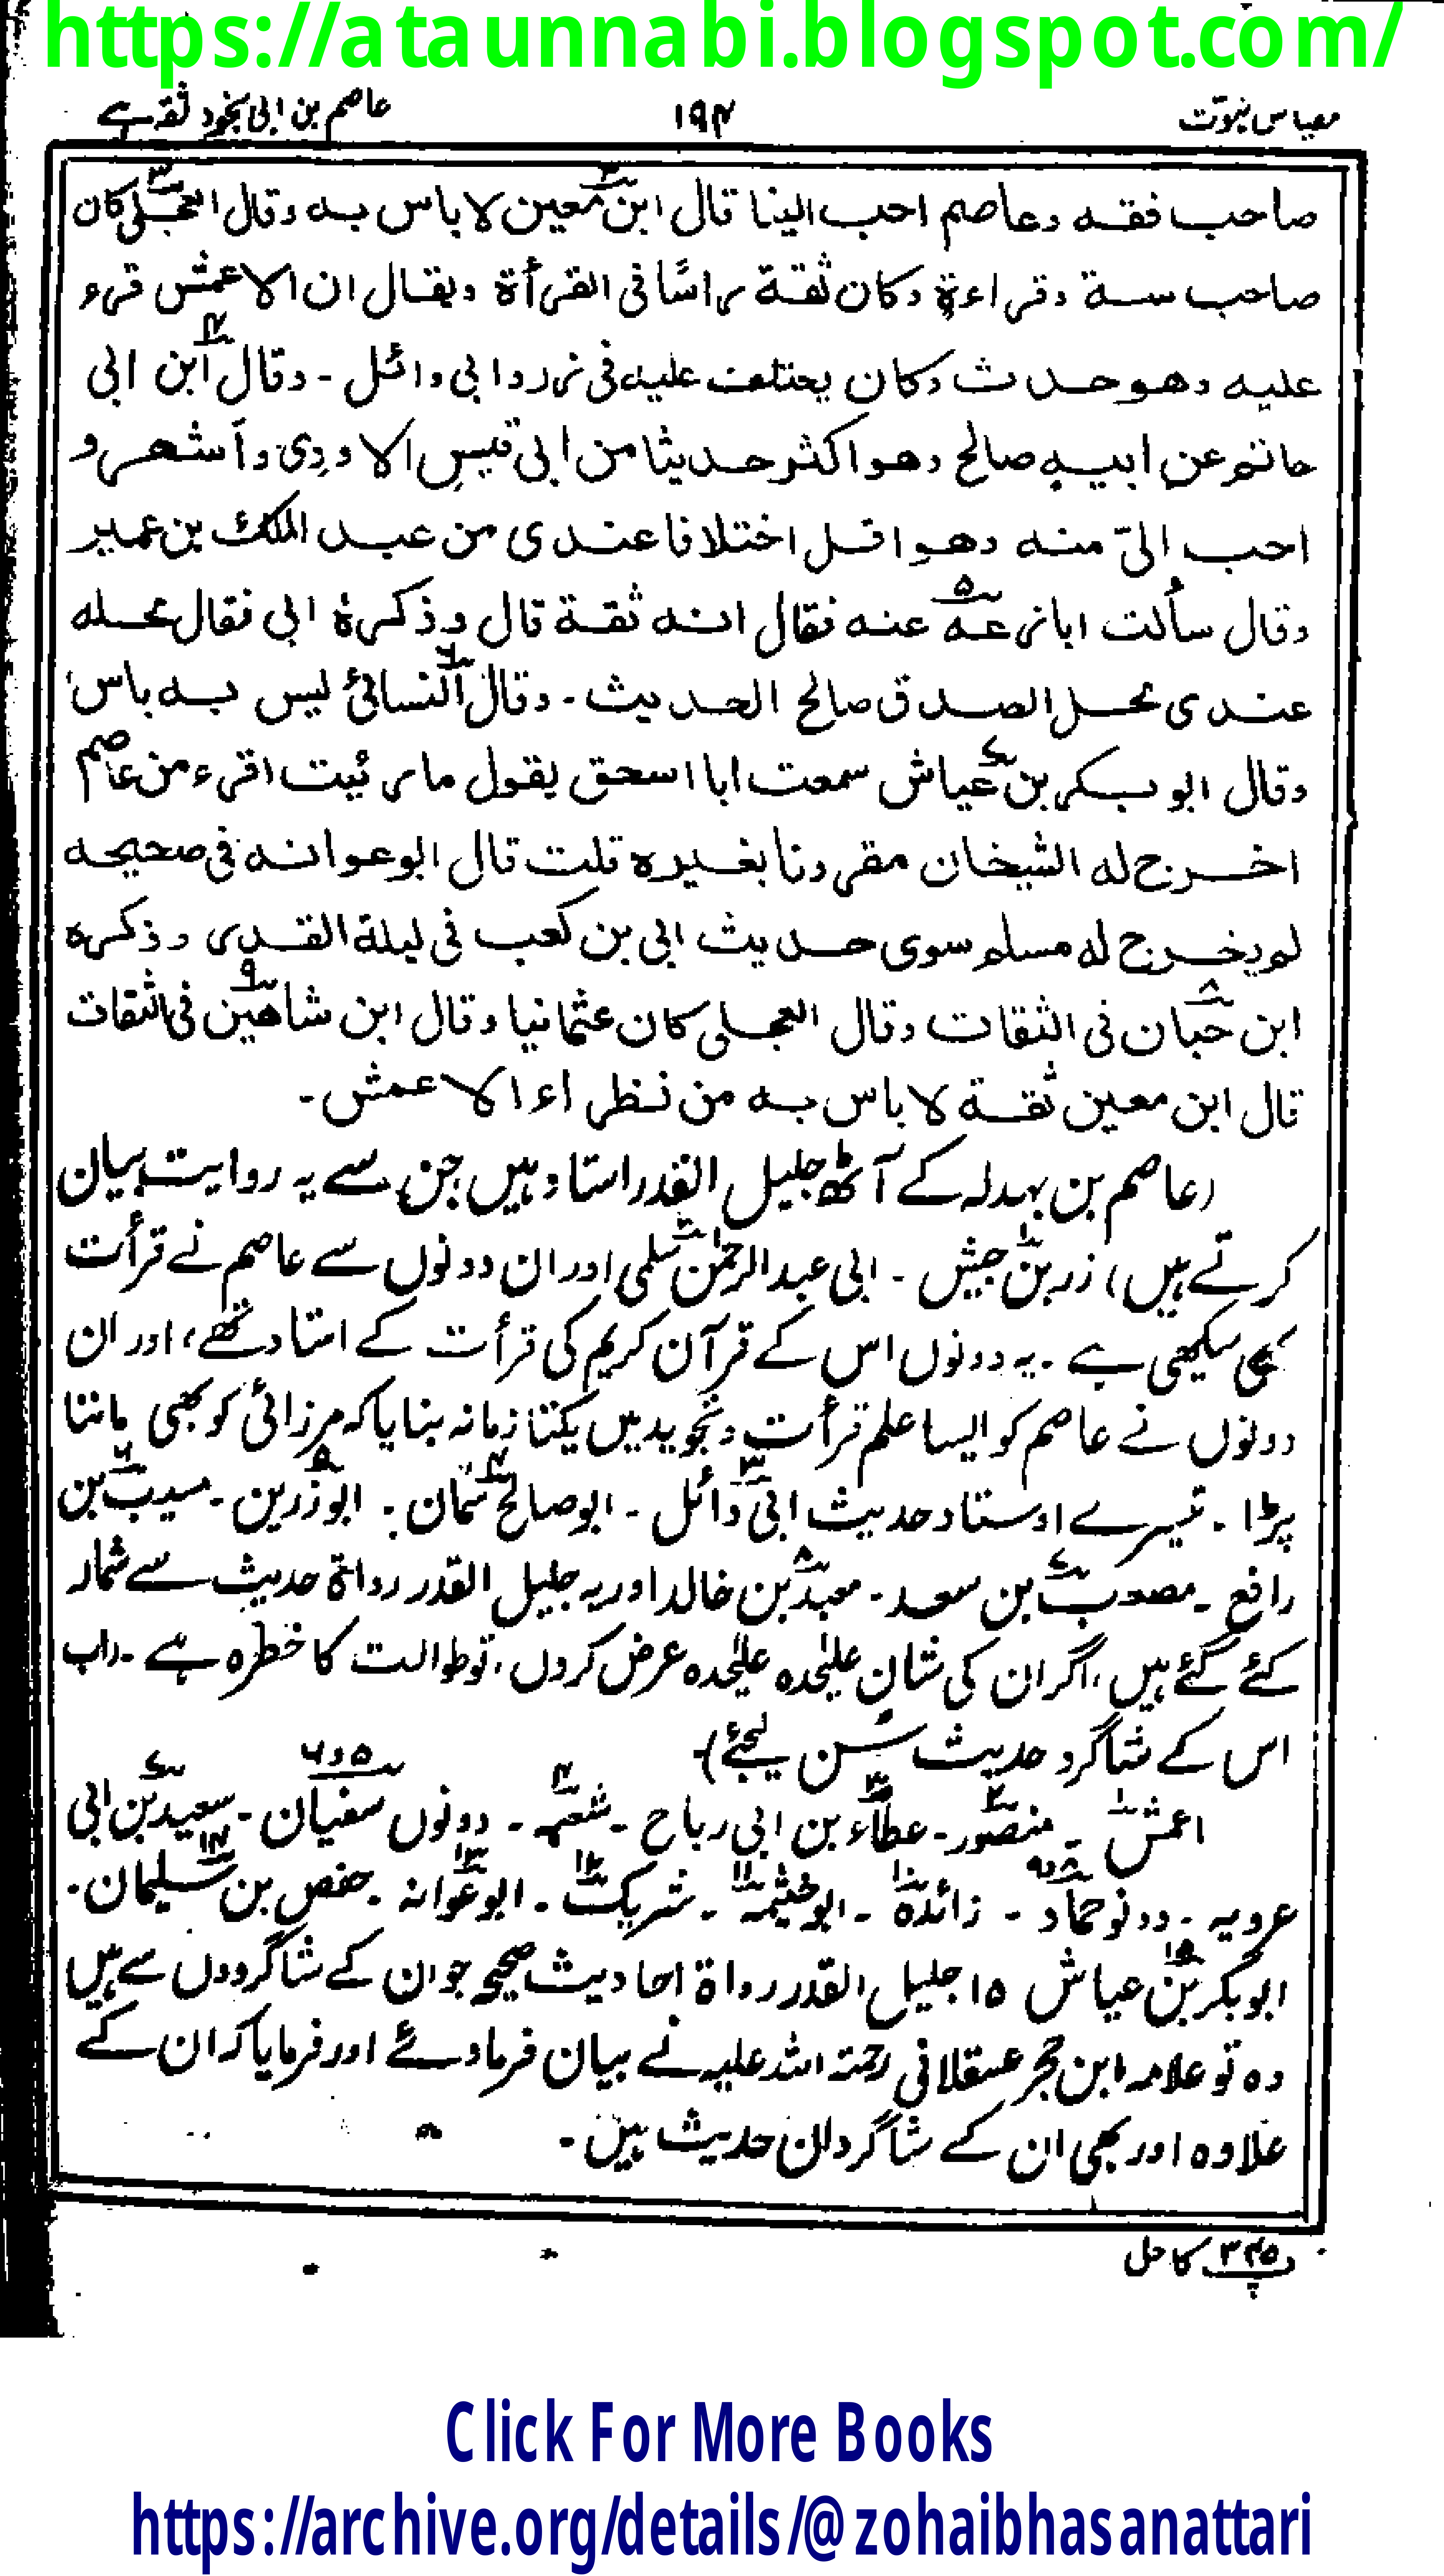 https://ataunnabi.blogspot.com/
مقیاس نبوت
۱۹۴
عاصم بن ابی نجود ثقہ ہے
صاحب فقه وعاصم احب الینا قال ابن معین لا باس به وقال العجلی کان
صاحب سنة وقراءة وکان ثقة راسًا فی القرأة ویقال ان الاعمش قرء
علیه وهو حدث وکان یختلف علیه فی زر وابی وائل - وقال ابن ابی
حاتم عن ابیه صالح وهو اکثر حدیثا من ابی قیس الاودی وأشهر و
احب الیّ منه وهو اقل اختلافا عندی من عبد الملک بن عمیر
وقال سألت ابا زرعه عنه فقال انه ثقة قال وذکره ابی فقال محله
عندی محل الصدق صالح الحدیث - وقال النسائی لیس به باس
وقال ابو بکر بن عیاش سمعت ابا اسحق یقول ما رئیت اقرء من عاصم
اخرج له الشیخان مقرونا بغیره قلت قال ابو عوانه فی صحیحه
لم یخرج له مسلم سوی حدیث ابی بن کعب فی لیلة القدر وذکره
ابن حبان فی الثقات وقال العجلی کان عثمانیا وقال ابن شاهین فی الثقات
قال ابن معین ثقة لا باس به من نظراء الاعمش -
(عاصم بن بہدلہ کے آٹھ جلیل القدر استاد ہیں جن سے یہ روایت بیان
کرتے ہیں) زر بن حبیش - ابی عبدالرحمٰن سلمی اور ان دونوں سے عاصم نے قرأت
بھی سیکھی ہے - یہ دونوں اس کے قرآن کریم کی قرأت کے استاد تھے، اور ان
دونوں نے عاصم کو ایسا علم قرأت و تجوید میں یکتا زمانہ بنایا کہ مرزائی کو بھی ماننا
پڑا - تیسرے اوستاد حدیث ابی وائل - ابو صالح سمان - ابوزرین - مسیب بن
رافع - مصعب بن سعد - معبد بن خالد اور یہ جلیل القدر رواۃ حدیث سے شمار
کئے گئے ہیں، اگر ان کی شان علیٰحدہ علیٰحدہ عرض کروں، تو طوالت کا خطرہ ہے - (اب
اس کے شاگرد حدیث سن لیجئے)
اعمش - منصور - عطاء بن ابی رباح - شعبہ - دونوں سفیان - سعید بن ابی
عروبہ - دونو حماد - زائدہ - ابو خثیمہ - شریک - ابو عوانہ - حفص بن سلیمان -
ابو بکر بن عیاش ۱۵ جلیل القدر رواۃ احادیث صحیح جو ان کے شاگردوں سے ہیں
وہ تو علامہ ابن حجر عسقلانی رحمتہ اللہ علیہ نے بیان فرما دئے اور فرمایا کہ ان کے
علاوہ اور بھی ان کے شاگردان حدیث ہیں -
۳۴۵ کا حل
Click For More Books
https://archive.org/details/@zohaibhasanattari